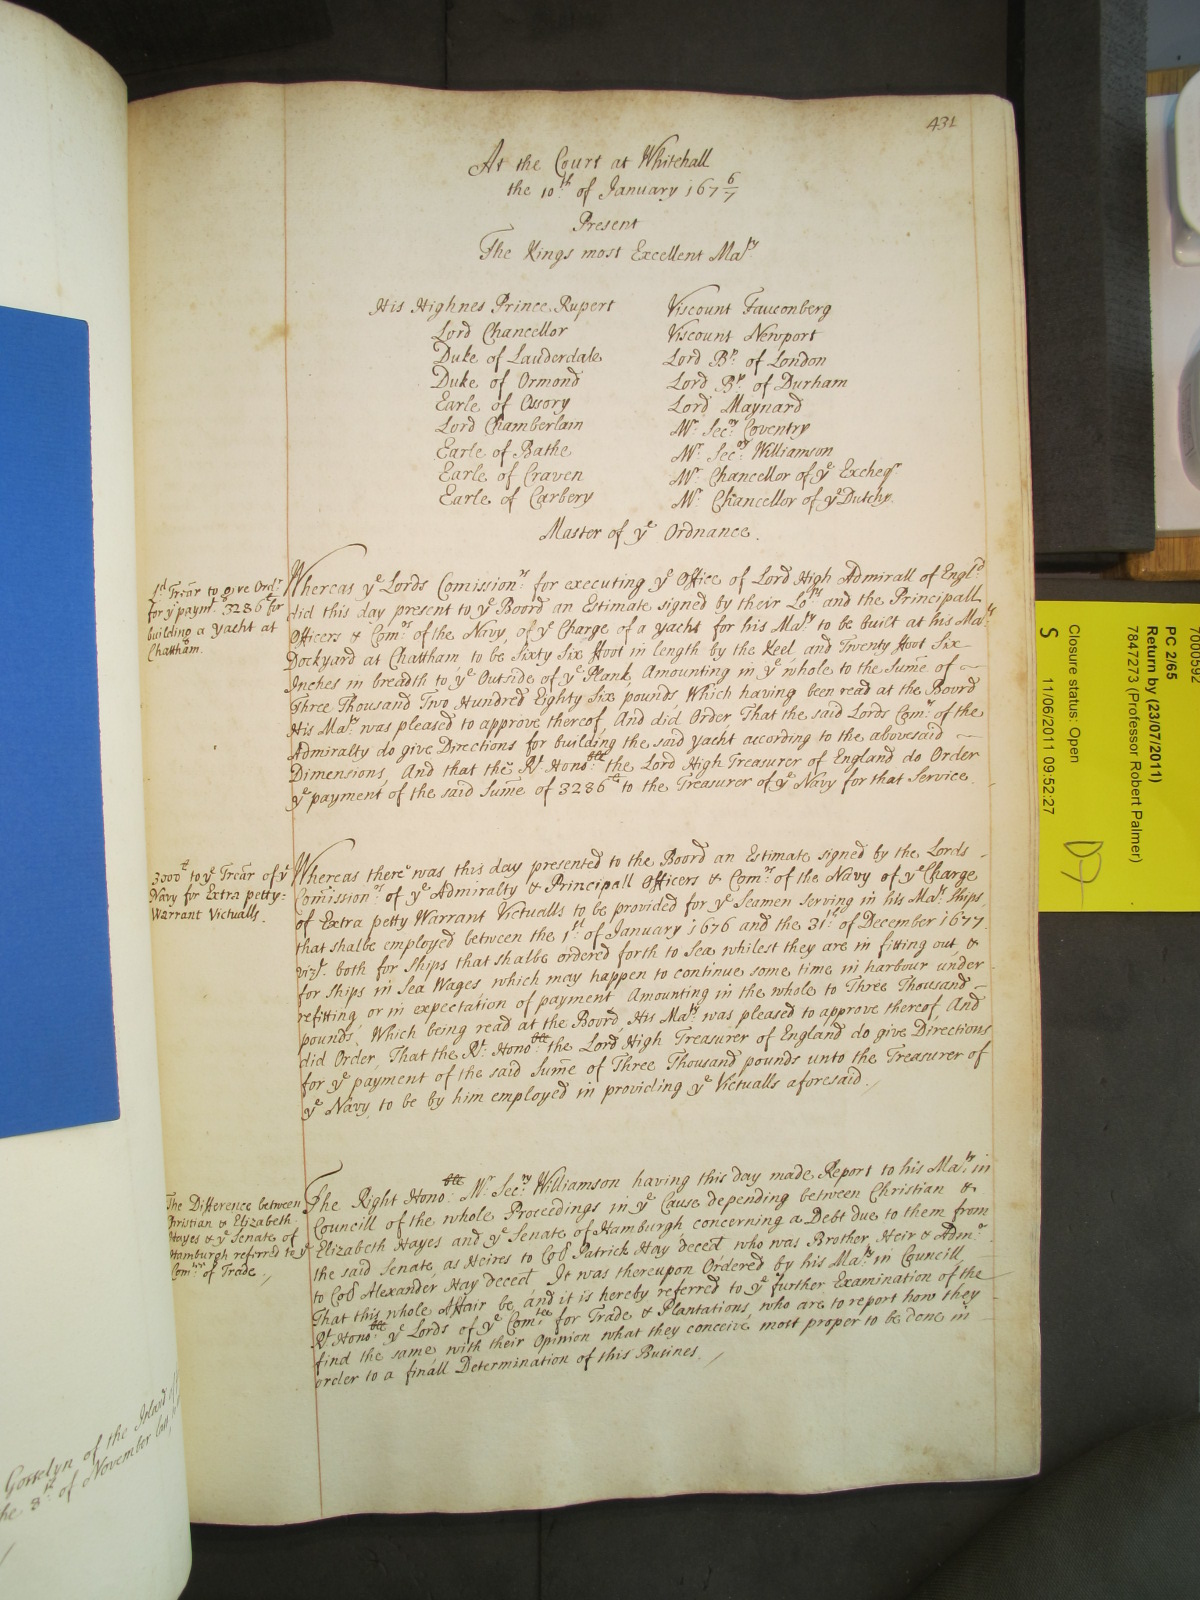 431
At the Court at Whitehall
the 10th of January 167 6/7
Present
The Kings most Excellent Maty
His Highnes Prince Rupert
Lord Chancellor
Duke of Lauderdale
Duke of Ormond
Earle of Ossory
Lord Chamberlain
Earle of Bathe
Earle of Craven
Earle of Carbery
Viscount Fauconberg
Viscount Newport
Lord Bp. of London
Lord Bp. of Durham
Lord Maynard
Mr. Secry Coventry
Mr. Secry Williamson
Mr. Chancellor of ye Excheqr
Mr. Chancellor of ye Dutchy.
Master of ye Ordnance.
Ld Trear to give Ordr
for ye paymt. 3286li for
building a yacht at
Chattham.
Whereas ye Lords Comissionrs for executing ye Office of Lord High Admirall of Engld
did this day present to ye Boord an Estimate signed by their Lops and the Principall
Officers & Comrs of the Navy, of ye Charge of a yacht for his Maty to be built at his Mats
Dockyard at Chattham to be Sixty Six ffoot in length by the Keel and Twenty ffoot Six
Inches in breadth to ye Outside of ye Plank Amounting in ye whole to the Sume of
Three Thousand Two Hundred Eighty Six pounds Which having been read at the Boord
His Maty was pleased to approve thereof, And did Order That the said Lords Comrs of the
Admiralty do give Directions for building the said yacht according to the abovesaid
Dimensions, And that the Rt Honoble the Lord High Treasurer of England do Order
ye payment of the said Sume of 3286li to the Treasurer of ye Navy for that Service.
3000li to ye Trear of ye
Navy for Extra petty-
Warrant Victualls.
Whereas there was this day presented to the Boord an Estimate signed by the Lords
Comissionrs of ye Admiralty & Principall Officers & Comrs of the Navy of ye Charge
of Extra petty Warrant Victualls to be provided for ye Seamen serving in his Mats Ships,
that shalbe employed between the 1st of January 1676 and the 31th of December 1677.
vizt. both for Ships that shalbe ordered forth to Sea whilest they are in fitting out &
for Ships in Sea Wages which may happen to continue some time in harbour under
refitting or in expectation of payment Amounting in the whole to Three Thousand
pounds, Which being read at the Boord, His Maty was pleased to approve thereof, And
did Order, That the Rt. Honoble the Lord High Treasurer of England do give Directions
for ye payment of the said Sume of Three Thousand pounds unto the Treasurer of
ye Navy, to be by him employed in providing ye Victualls aforesaid.
The Difference between
Christian & Elizabeth
Hayes & ye Senate of
Hamburgh referred to ye
Comttee of Trade
The Right Honoble Mr. Secry Williamson having this day made Report to his Maty in
Councill of the whole Proceedings in ye Cause depending between Christian &
Elizabeth Hayes and ye Senate of Hamburgh concerning a Debt due to them from
the said Senate as Heires to Coll Patrick Hay deced, who was Brother Heir & Admr
to Coll Alexander Hay deced. It was thereupon Ordered by his Maty in Councill,
That this whole Affair be, and it is hereby referred to ye further Examination of the
Rt. Honoble ye Lords of ye Comttee for Trade & Plantations, who are to report how they
find the same with their Opinion what they conceive most proper to be done in
order to a finall Determination of this Busines.
Gosselyn of the Island of
the 3rd of November last
7000592
PC 2/65
Return by (23/07/2011)
7847273 (Professor Robert Palmer)
Closure status: Open
S 11/06/2011 09:52:27